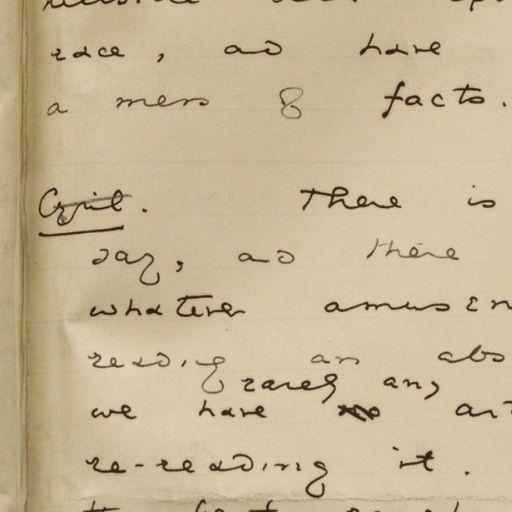 race, and have
a mess of facts.
Cyril. There is
say, and there
whatever amusem
reading an abs
rarely any
we have no art
re-reading it.